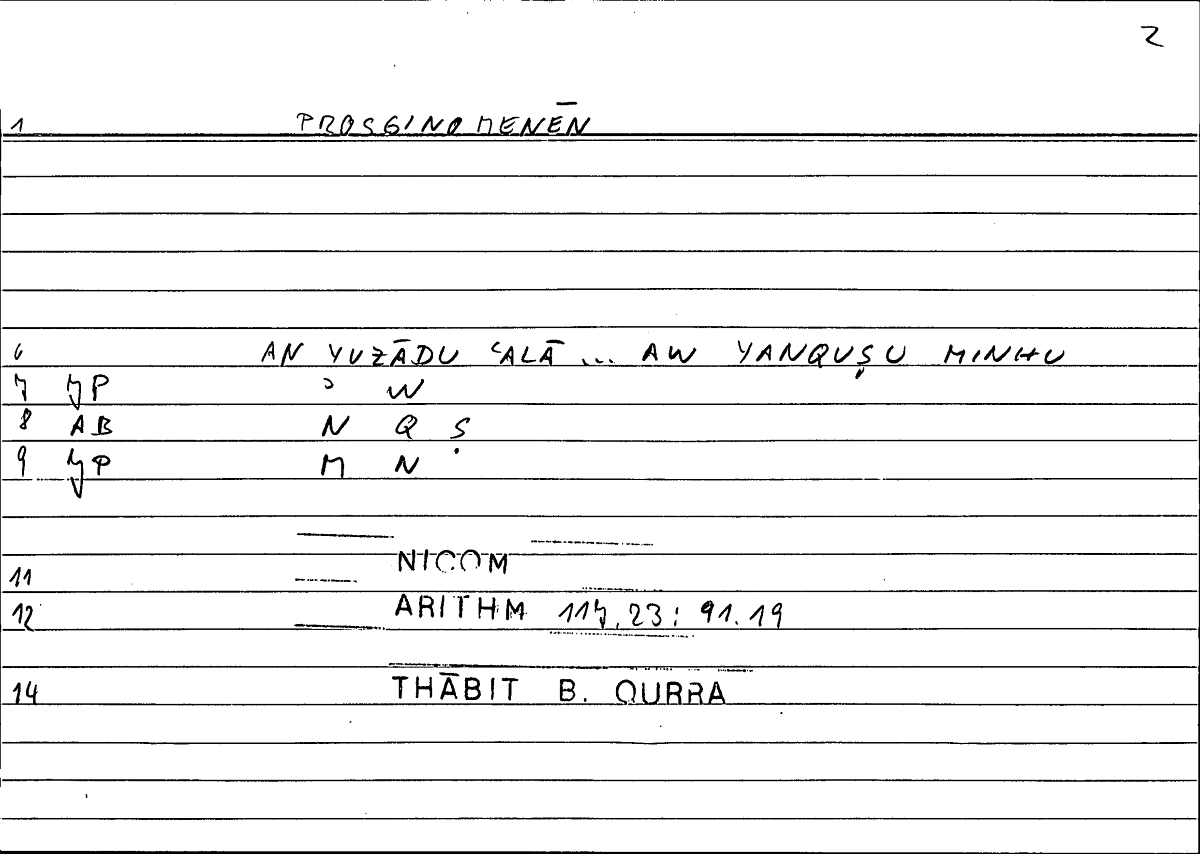 2
1 PROSGINOMENĒN
6 AN YUZĀDU ʿALĀ ... AW YANQUṢU MINHU
7 JP ʾ W
8 AB N Q Ṣ
9 JP M N
NICOM
11
12 ARITHM 117,23: 91.19
14 THĀBIT B. QURRA